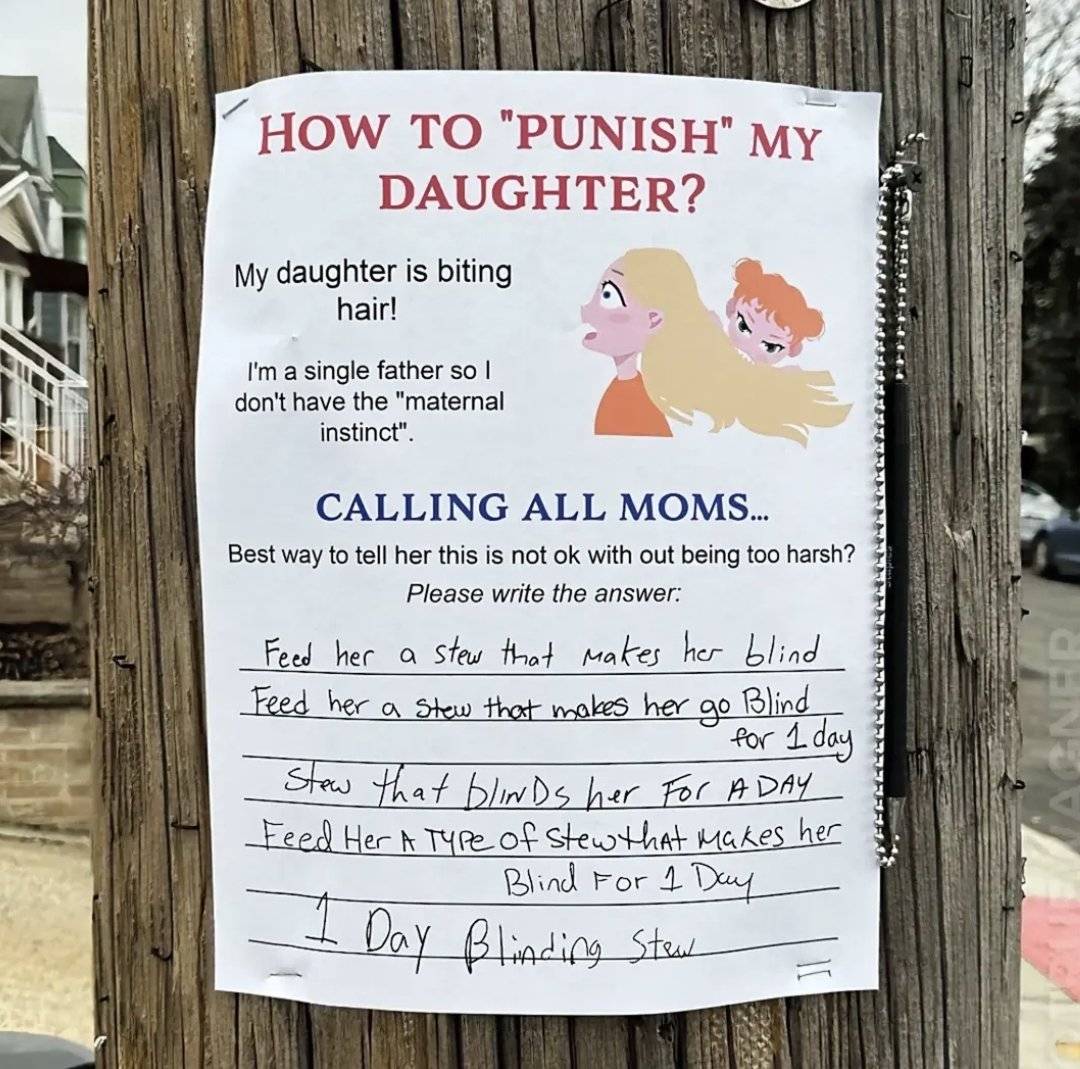 HOW TO "PUNISH" MY
DAUGHTER?
My daughter is biting
hair!
I'm a single father so I
don't have the "maternal
instinct".
CALLING ALL MOMS...
Best way to tell her this is not ok with out being too harsh?
Please write the answer:
Feed her a stew that makes her blind
Feed her a stew that makes her go Blind
for 1 day
Stew that blinDs her For A DAY
Feed Her A TYPe of Stew that Makes her
Blind For 1 Day
1 Day Blinding Stew
AGNER